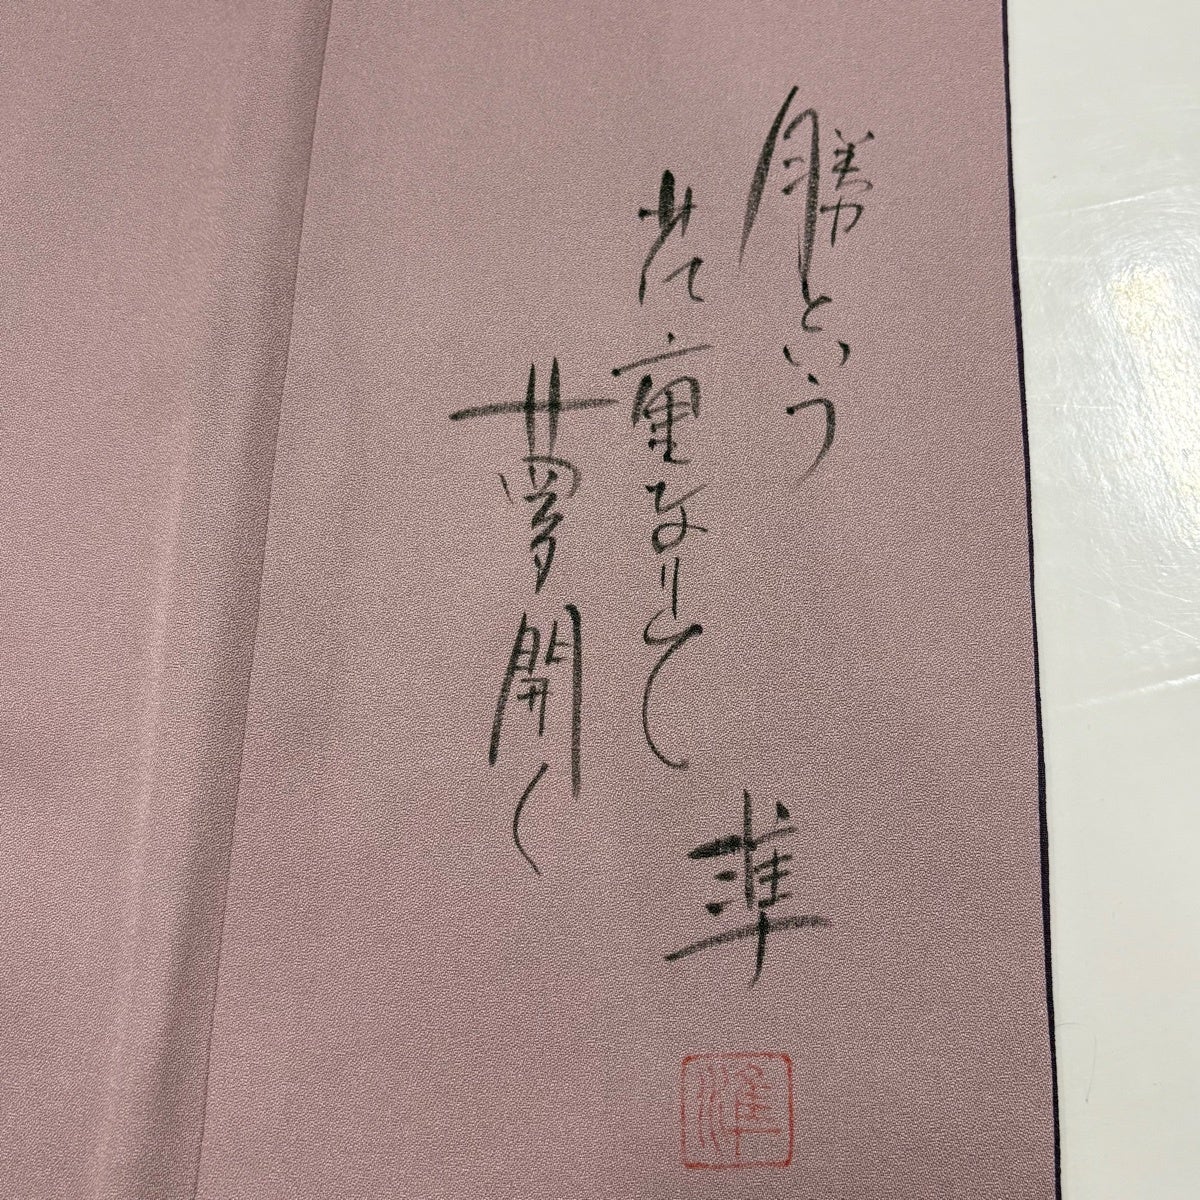 勝という
花重なりて
夢開く
準
準